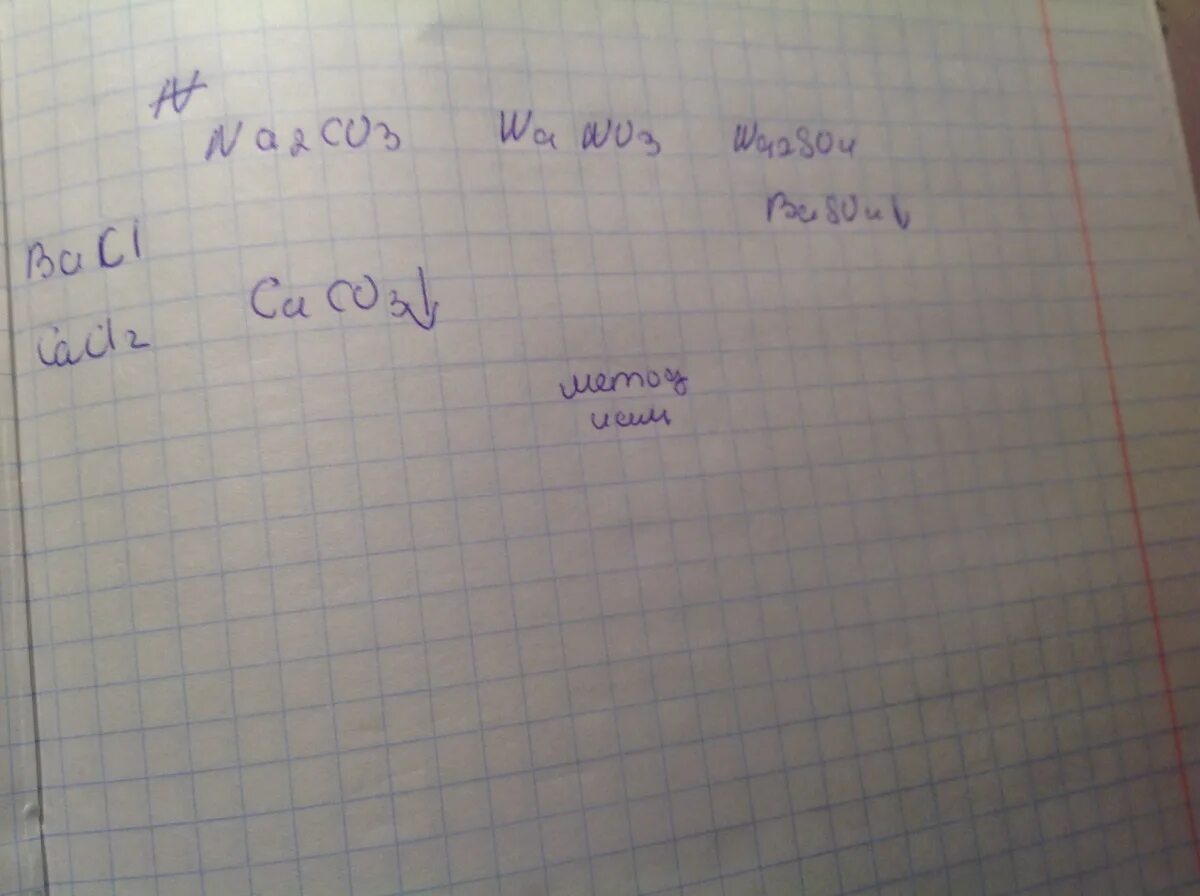 N
Na2CO3 NaNO3 Na2SO4
BaSO4↓
BaCl
CaCO3↓
CaCl2
метод
искл